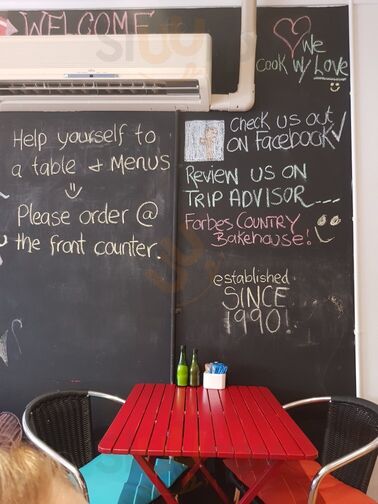 WELCOME
We
Cook w/ Love
Help yourself to
a table + MENUS
Please order @
the front counter.
Check us out
on Facebook
REVIEW US ON
TRIP ADVISOR...
Forbes COUNTRY
Bakehouse!
established
SINCE
1990!